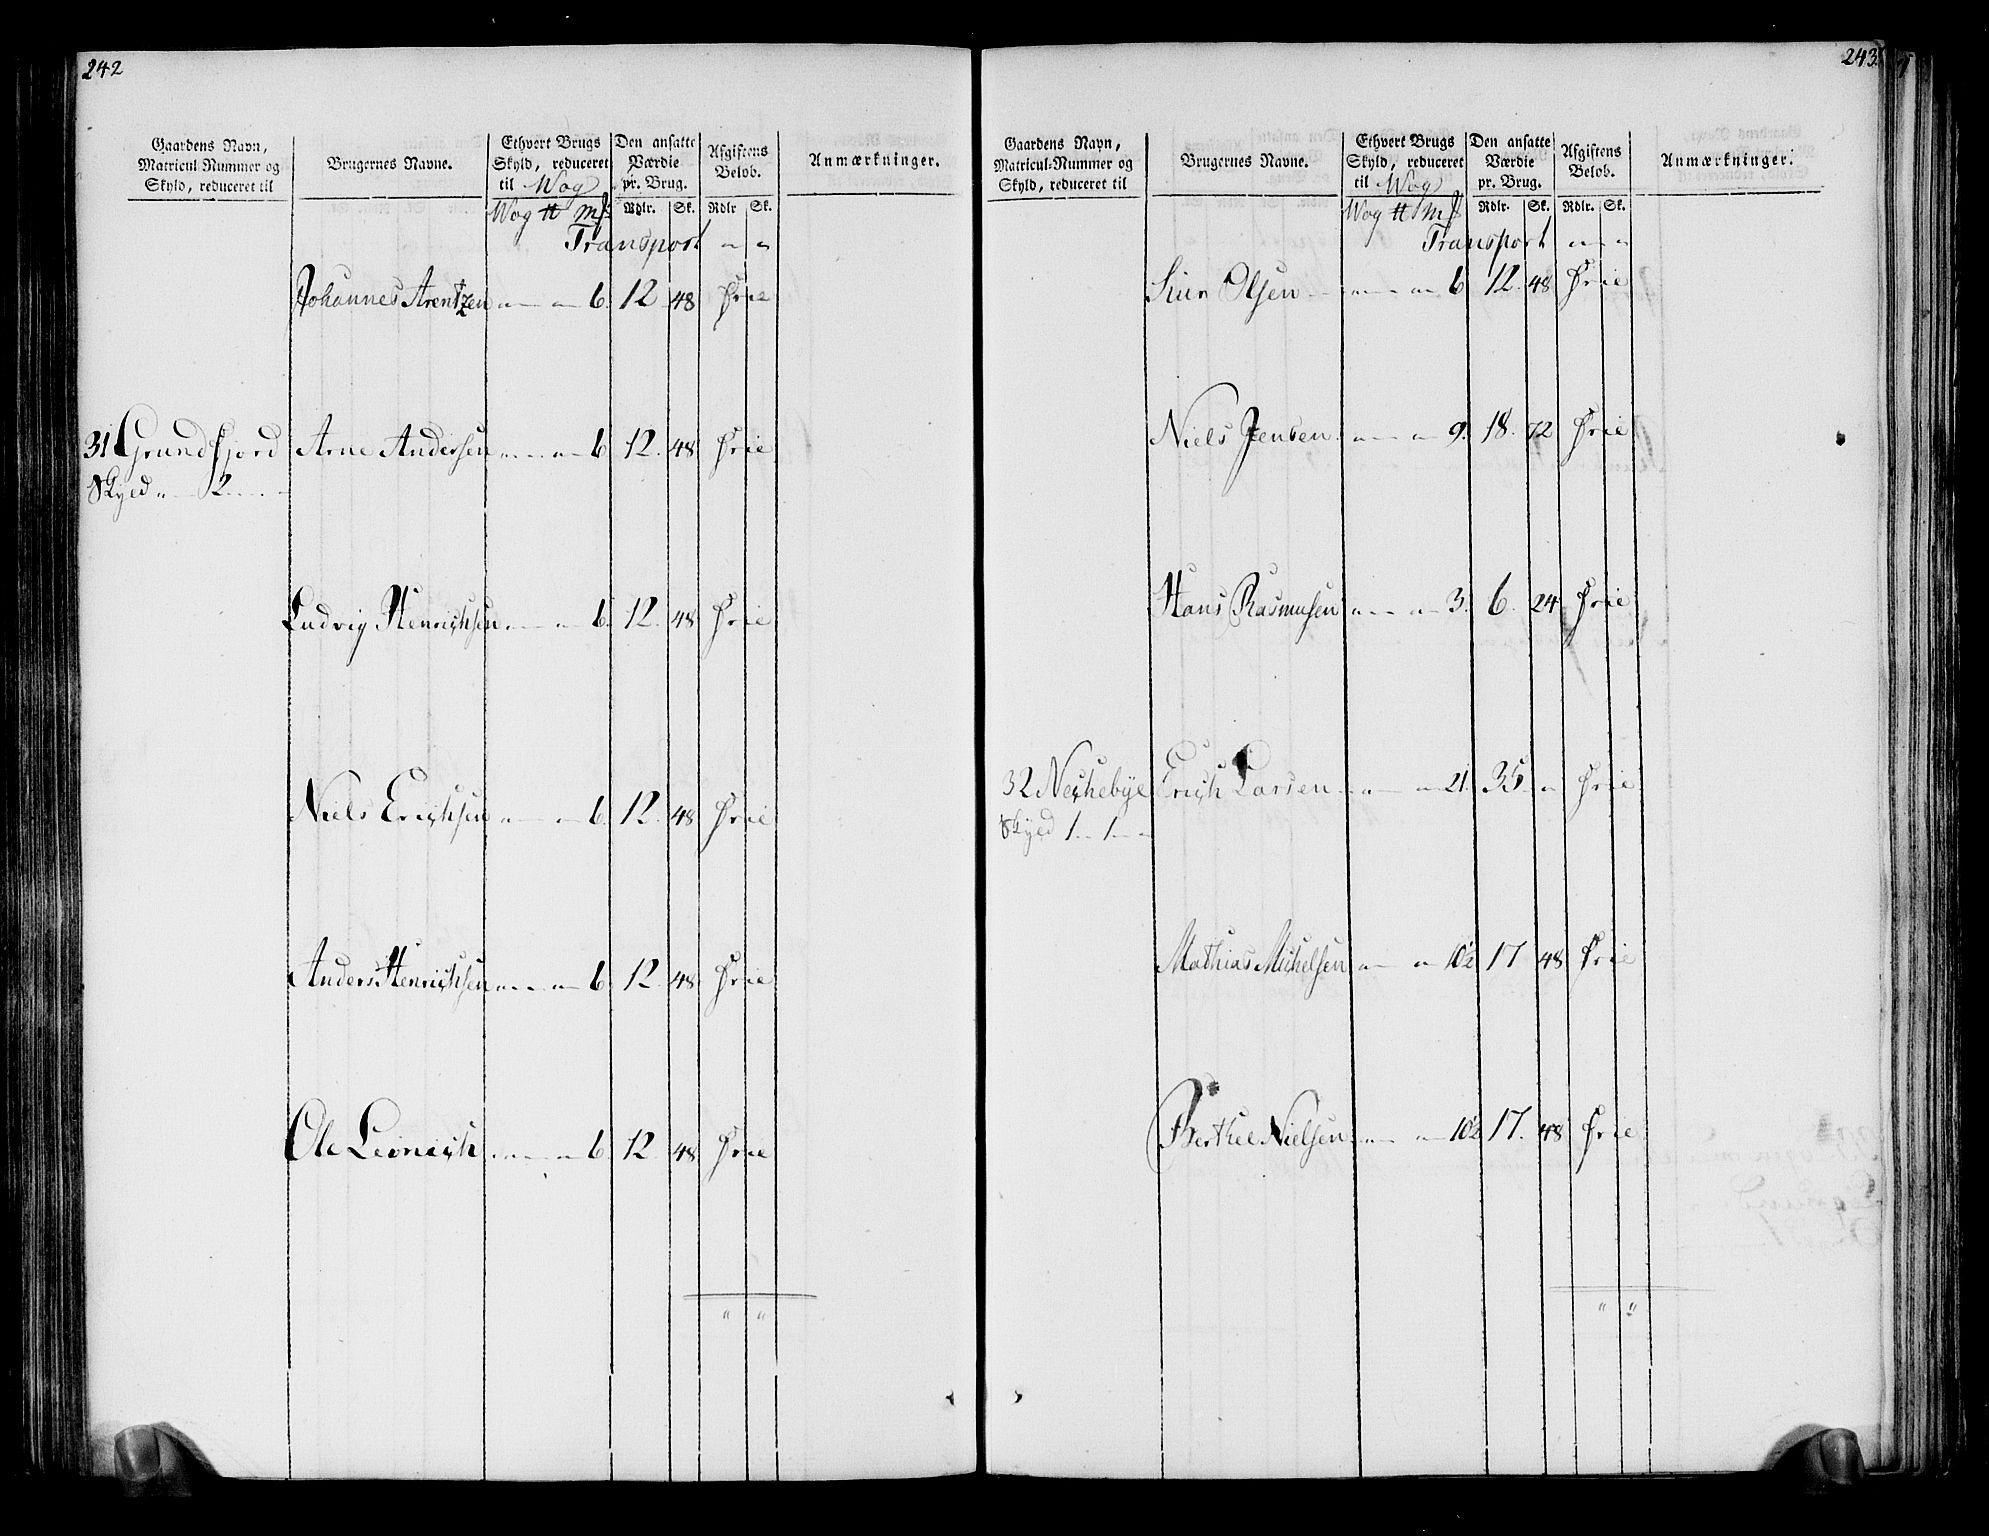 242
Gaardens Navn, Matricul-Nummer og Skyld, reduceret til | Brugernes Navne. | Ethvert Brugs Skyld, reduceret til Wog | Den ansatte Værdie pr. Brug. | Afgiftens Beløb. | Anmærkninger.
Wog ℔ mß | Rdlr. | Sk. | Rdlr | Sk.
Transport " "
Johannes Arentzen " " 6. 12 48 Frie
31 Grundfjord Arne Andersen " " 6 12. 48 Frie
Skyld " 2 "
Ludvig Henrichsen " " 6. 12. 48 Frie
Niels Erichsen " " 6. 12. 48 Frie
Anders Henrichsen " " 6. 12. 48 Frie
Ole Leonich " " 6. 12 48 Frie
" "
243.
Gaardens Navn, Matricul-Nummer og Skyld, reduceret til | Brugernes Navne. | Ethvert Brugs Skyld, reduceret til Wog | Den ansatte Værdie pr. Brug. | Afgiftens Beløb. | Anmærkninger.
Wog ℔ mß | Rdlr. | Sk. | Rdlr. | Sk.
Transport " "
Siur Olsen " " 6 12. 48 Frie
Niels Jensen " " 9. 18. 72 Frie
Hans Rasmusen " " 3. 6. 24 Frie
32 Neschebye Erich Larsen " " 21. 35. " Frie
Skyld 1 " 1 "
Mathias Michelsen " " 10½ 17 48 Frie
Berthel Nielsen " " 10½ 17. 48 Frie
" "